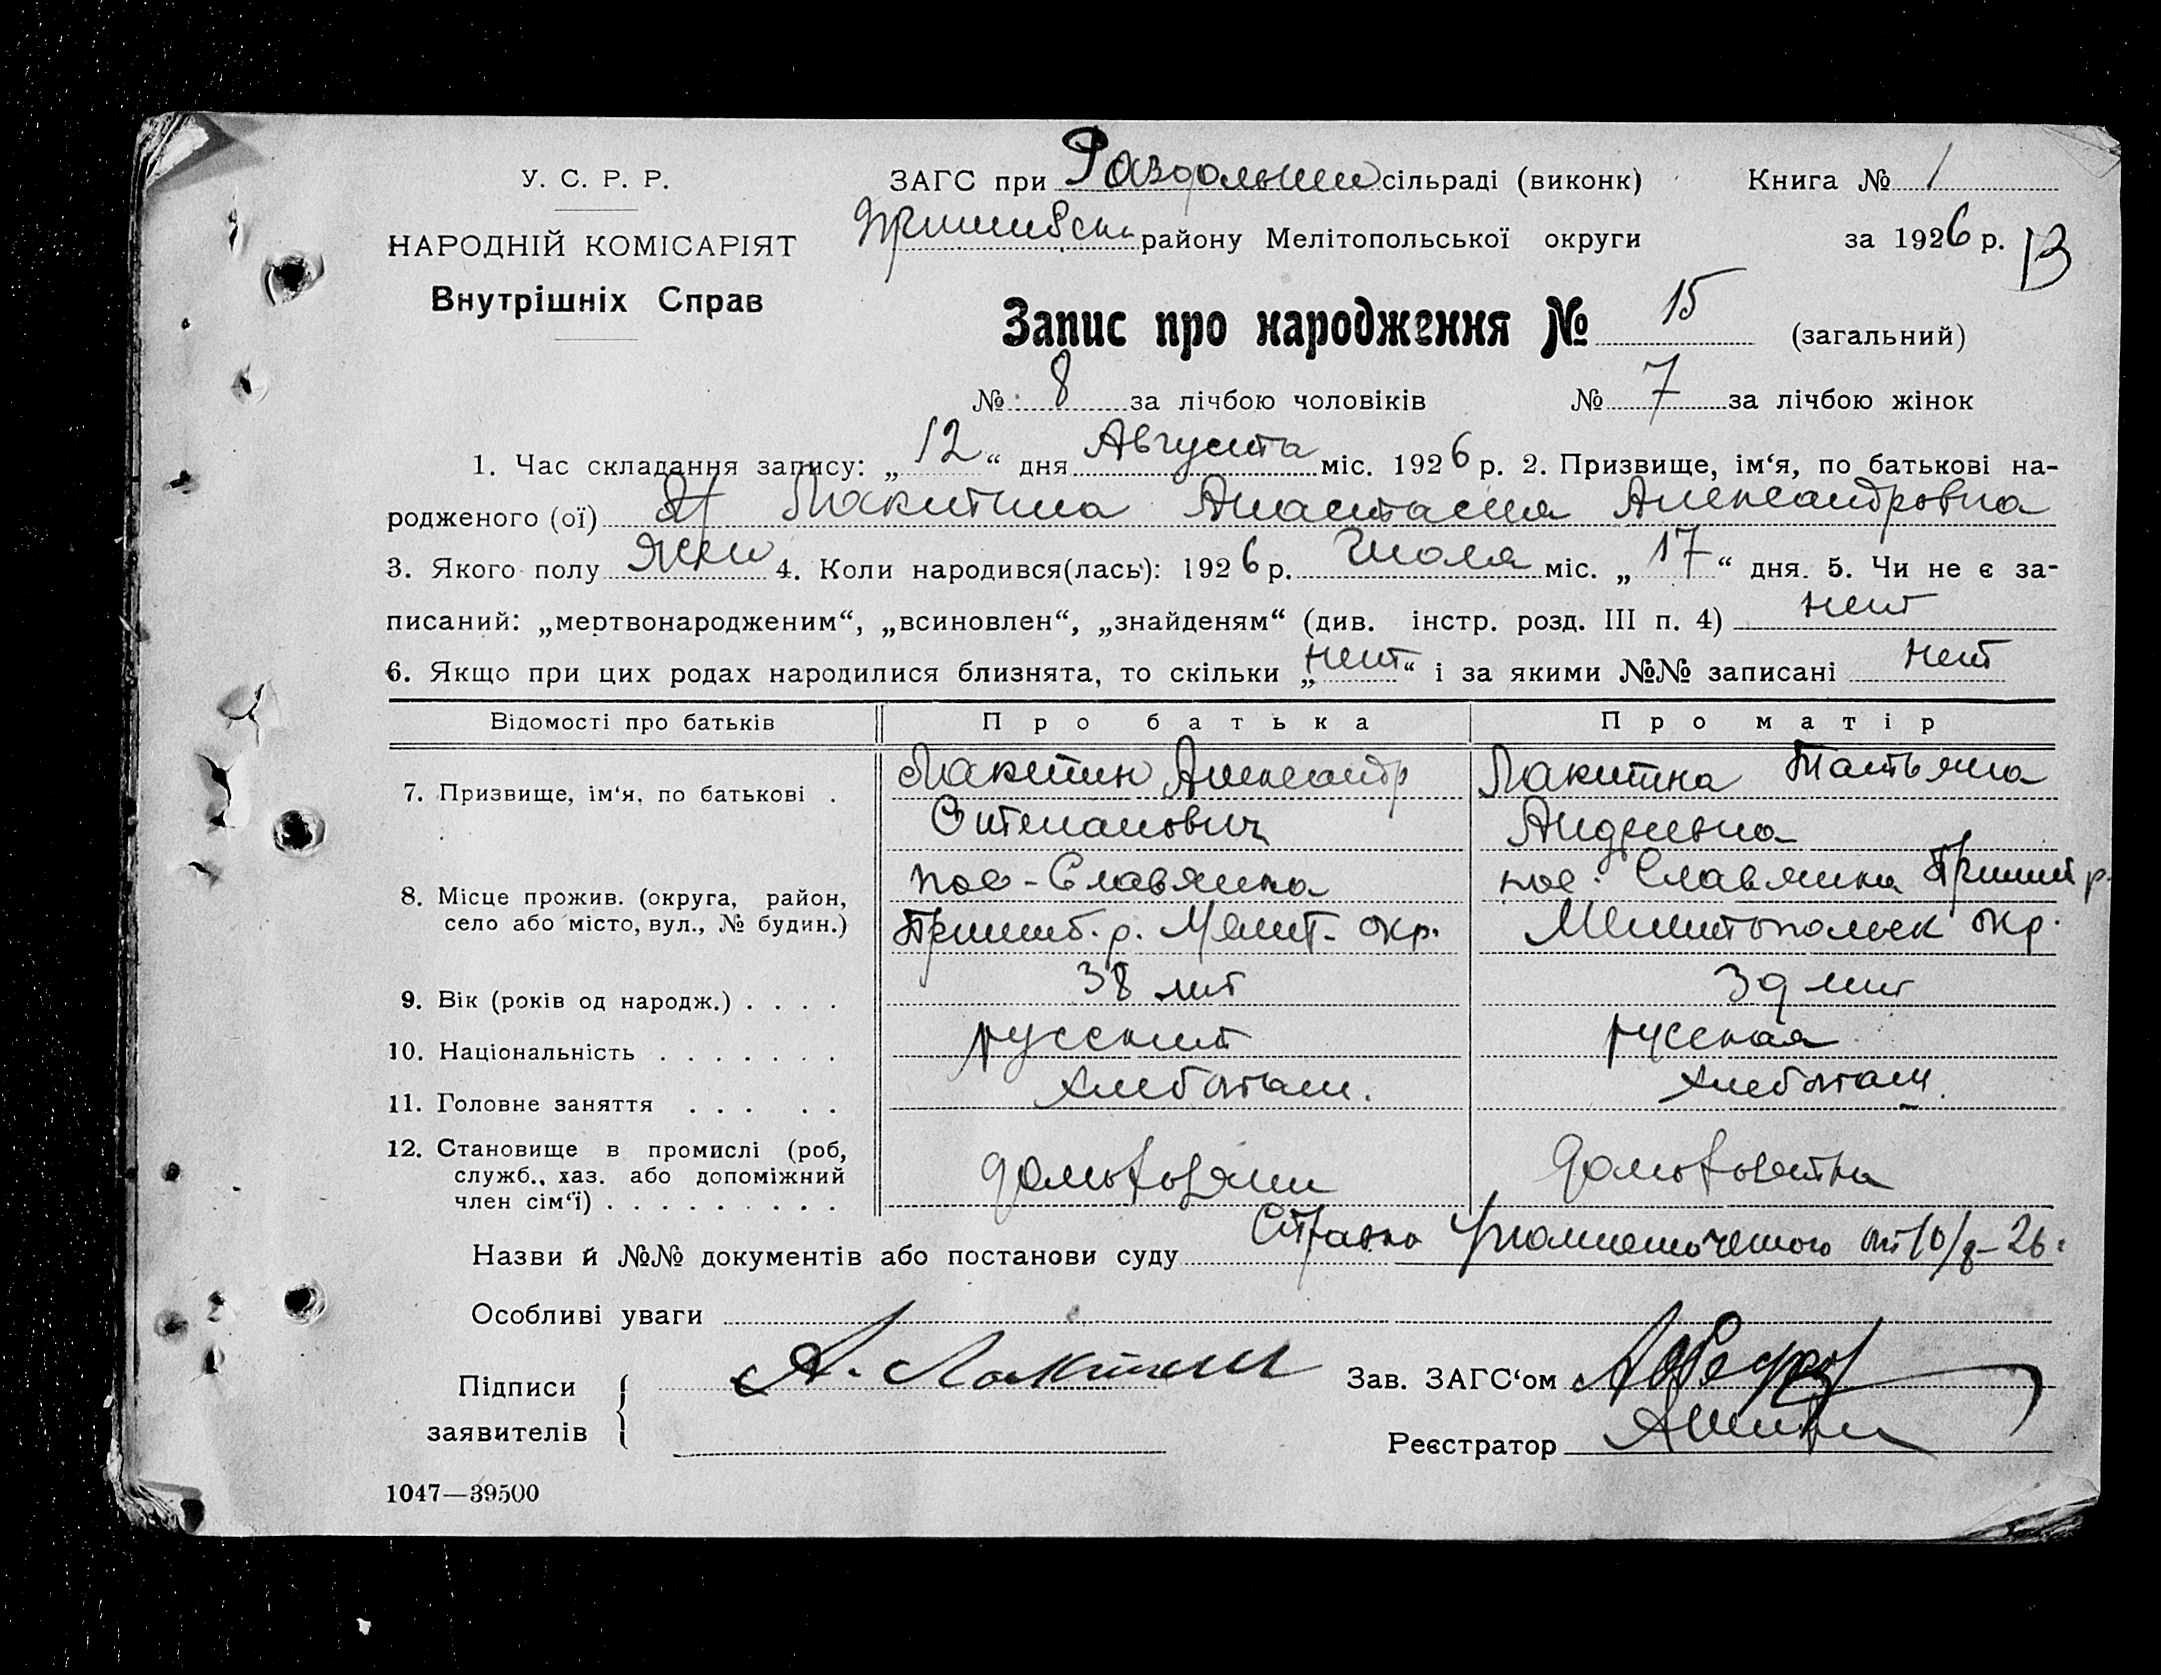 У. С. Р. Р.
НАРОДНІЙ КОМІСАРІЯТ
Внутрішніх Справ
ЗАГС при Раздольши сільраді (виконк) Книга № 1
району Мелітопольської округи за 1926 р. 13
Запис про народження № 15 (загальний)
№ 8 за лічбою чоловіків № 7 за лічбою жінок
1. Час складання запису: „12“ дня Августа міс. 1926 р. 2. Призвище, ім‘я, по батькові на-
родженого (ої) Лакитина Анастасия Александровна
3. Якого полу жен 4. Коли народився(лась): 1926 р. Июля міс. „17“ дня. 5. Чи не є за-
писаний: „мертвонародженим“, „всиновлен“, „знайденям“ (див. інстр. розд. III п. 4) нет
6. Якщо при цих родах народилися близнята, то скільки „нет“ і за якими №№ записані нет
Відомості про батьків Про батька Про матір
7. Призвище, ім‘я, по батькові . Лакитин Александр Лакитина Татьяна
Степанович Андревна
8. Місце прожив. (округа, район, село або місто, вул., № будин.) пос-Славянка пос. Славянка Пришиб р.
Пришиб. р. Мелит. окр. Мелитопольск окр.
9. Вік (років од народж.) . . . . 38 лет 39 лет
10. Національність . . . . . . . русский русская
11. Головне заняття . . . . . хлебопаш. хлебопаш.
12. Становище в промислі (роб, служб., хаз. або допоміжний член сім‘ї) . . . . . . . . . домохозяин домохозяйка
Назви й №№ документів або постанови суду Справка Уполномоченого от 10/8-26г
Особливі уваги
Підписи заявителів А. Лакитин Зав. ЗАГС‘ом
Реєстратор
1047—39500